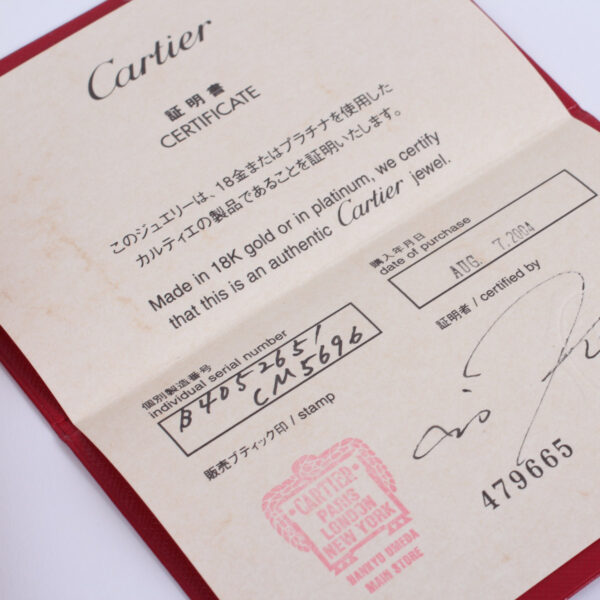 Cartier
証明書
CERTIFICATE
このジュエリーは、18金またはプラチナを使用した
カルティエの製品であることを証明いたします。
Made in 18K gold or in platinum, we certify
that this is an authentic Cartier jewel.
購入年月日
date of purchase
AUG. 7.2004
個別製造番号
individual serial number
B4052651
CM5696
証明者 / certified by
販売ブティック印 / stamp
CARTIER
PARIS
LONDON
NEW YORK
HANKYU UMEDA
MAIN STORE
479665